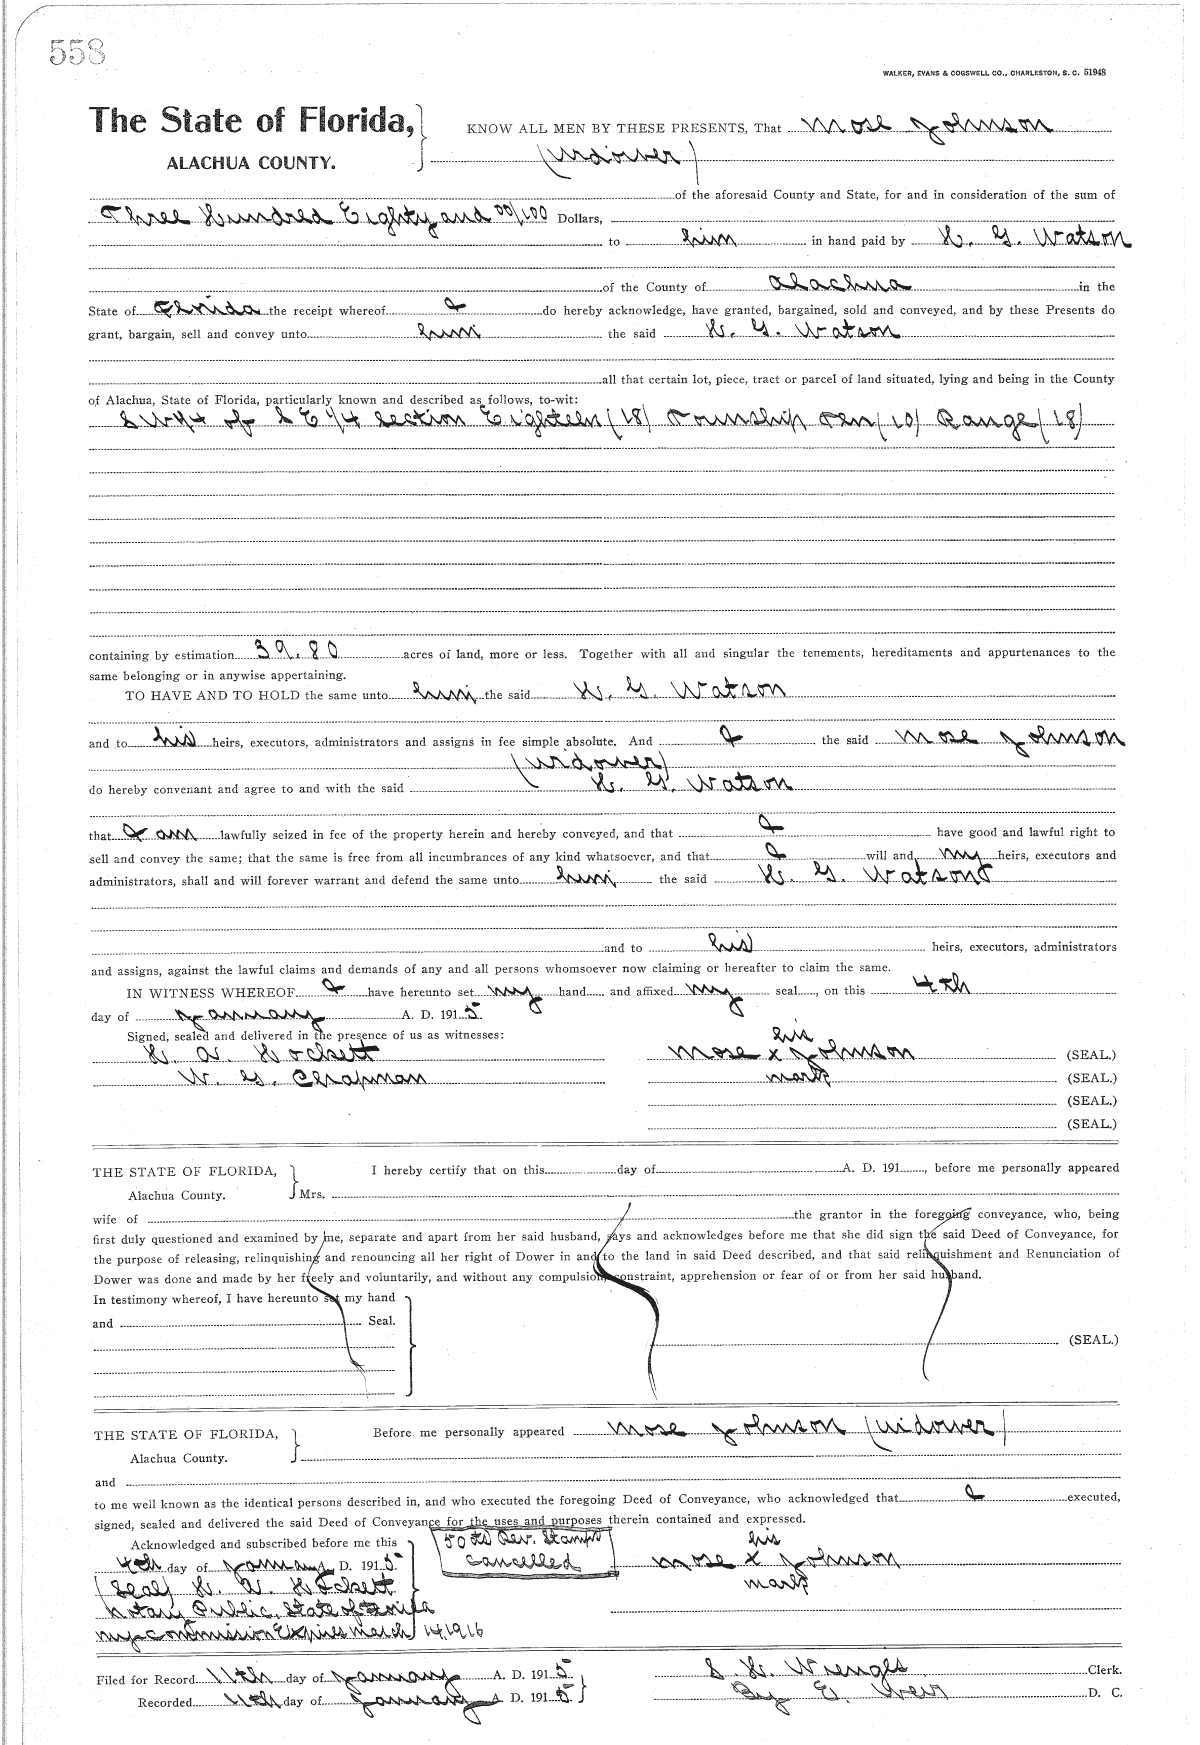 558
WALKER, EVANS & COGSWELL CO., CHARLESTON, S. C. 51948
The State of Florida,
ALACHUA COUNTY.
KNOW ALL MEN BY THESE PRESENTS, That Mose Johnson
(widower)
of the aforesaid County and State, for and in consideration of the sum of
Three Hundred Eighty and 00/100 Dollars,
to him in hand paid by H. G. Watson
of the County of Alachua in the
State of Florida the receipt whereof I do hereby acknowledge, have granted, bargained, sold and conveyed, and by these Presents do
grant, bargain, sell and convey unto him the said H. G. Watson
all that certain lot, piece, tract or parcel of land situated, lying and being in the County
of Alachua, State of Florida, particularly known and described as follows, to-wit:
S W 1/4 of S E 1/4 Section Eighteen (18) Township Ten (10) Range (18)
containing by estimation 39.80 acres of land, more or less. Together with all and singular the tenements, hereditaments and appurtenances to the
same belonging or in anywise appertaining.
TO HAVE AND TO HOLD the same unto him the said H. G. Watson
and to his heirs, executors, administrators and assigns in fee simple absolute. And I the said Mose Johnson
(widower)
do hereby convenant and agree to and with the said H. G. Watson
that I am lawfully seized in fee of the property herein and hereby conveyed, and that I have good and lawful right to
sell and convey the same; that the same is free from all incumbrances of any kind whatsoever, and that I will and my heirs, executors and
administrators, shall and will forever warrant and defend the same unto him the said H. G. Watson
and to his heirs, executors, administrators
and assigns, against the lawful claims and demands of any and all persons whomsoever now claiming or hereafter to claim the same.
IN WITNESS WHEREOF I have hereunto set my hand and affixed my seal, on this 4th
day of January A. D. 1915.
Signed, sealed and delivered in the presence of us as witnesses:
his
H. A. Hockett Mose x Johnson (SEAL.)
W. G. Chapman mark (SEAL.)
(SEAL.)
(SEAL.)
THE STATE OF FLORIDA,
Alachua County.
I hereby certify that on this day of A. D. 191 , before me personally appeared
Mrs.
wife of the grantor in the foregoing conveyance, who, being
first duly questioned and examined by me, separate and apart from her said husband, says and acknowledges before me that she did sign the said Deed of Conveyance, for
the purpose of releasing, relinquishing and renouncing all her right of Dower in and to the land in said Deed described, and that said relinquishment and Renunciation of
Dower was done and made by her freely and voluntarily, and without any compulsion, constraint, apprehension or fear of or from her said husband.
In testimony whereof, I have hereunto set my hand
and Seal.
(SEAL.)
THE STATE OF FLORIDA,
Alachua County.
Before me personally appeared Mose Johnson (widower)
and
to me well known as the identical persons described in, and who executed the foregoing Deed of Conveyance, who acknowledged that I executed,
signed, sealed and delivered the said Deed of Conveyance for the uses and purposes therein contained and expressed.
Acknowledged and subscribed before me this
50 cts Rev. Stamps
Cancelled
4th day of January D. 1915
his
Mose x Johnson
mark
(Seal) H. A. Hockett
Notary Public, State of Florida
My Commission Expires March 14, 1916
Filed for Record 11th day of January A. D. 1915
Recorded 11th day of January D. 1915
S. H. Wienges Clerk.
By E. Weir D. C.